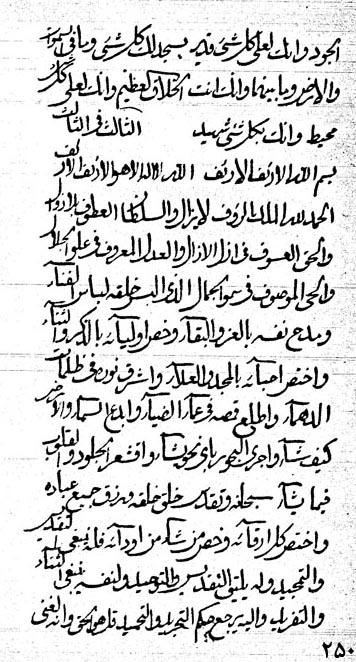 الجود وانك لعلى كل شئ قدير يسجد لك كل شئ وما فى السموات
والارض وما بينهما وانك انت الخلاق العظيم وانك لعلى كل
محيط وانك بكل شئ شهيد الثالث فى الثالث
بسم الله الارئف الارئف الله لا اله الا هو الارئف الارئف
الحمد لله الملك الروف لايزال والسلطان العطوف
والحق العسوف فى ازل الازال والعدل المعروف فى علو الجلال
والحى الموصوف فى سمو الجمال الذى البس خلقه لباس الفناء
ومدح نفسه بالعز والبقاء وخص اوليائه بالذكر والثناء
واختص احبائه بالمجد والعلاء واشرق نوره فى ظلمات
الدهماء واطلع شمسه فى عماء الضياء وابدع السماء والارض
كيف شاء واجرى البحور باى نحو شاء واقشعر الجلود والقلوب
فيما يشاء سبحانه وتقدس خلق خلقه ورزق جميع عباده
واختص كل ارقائه وخص من شاء من اودائه فله ينبغى التقديس
والتمجيد وله يليق التقديس والتوحيد ولنفسه ينبغى الثناء
والتفريد واليه يرجع حكم التجريد والتحميد فله هو الحق وانه الغنى
٢٥٠